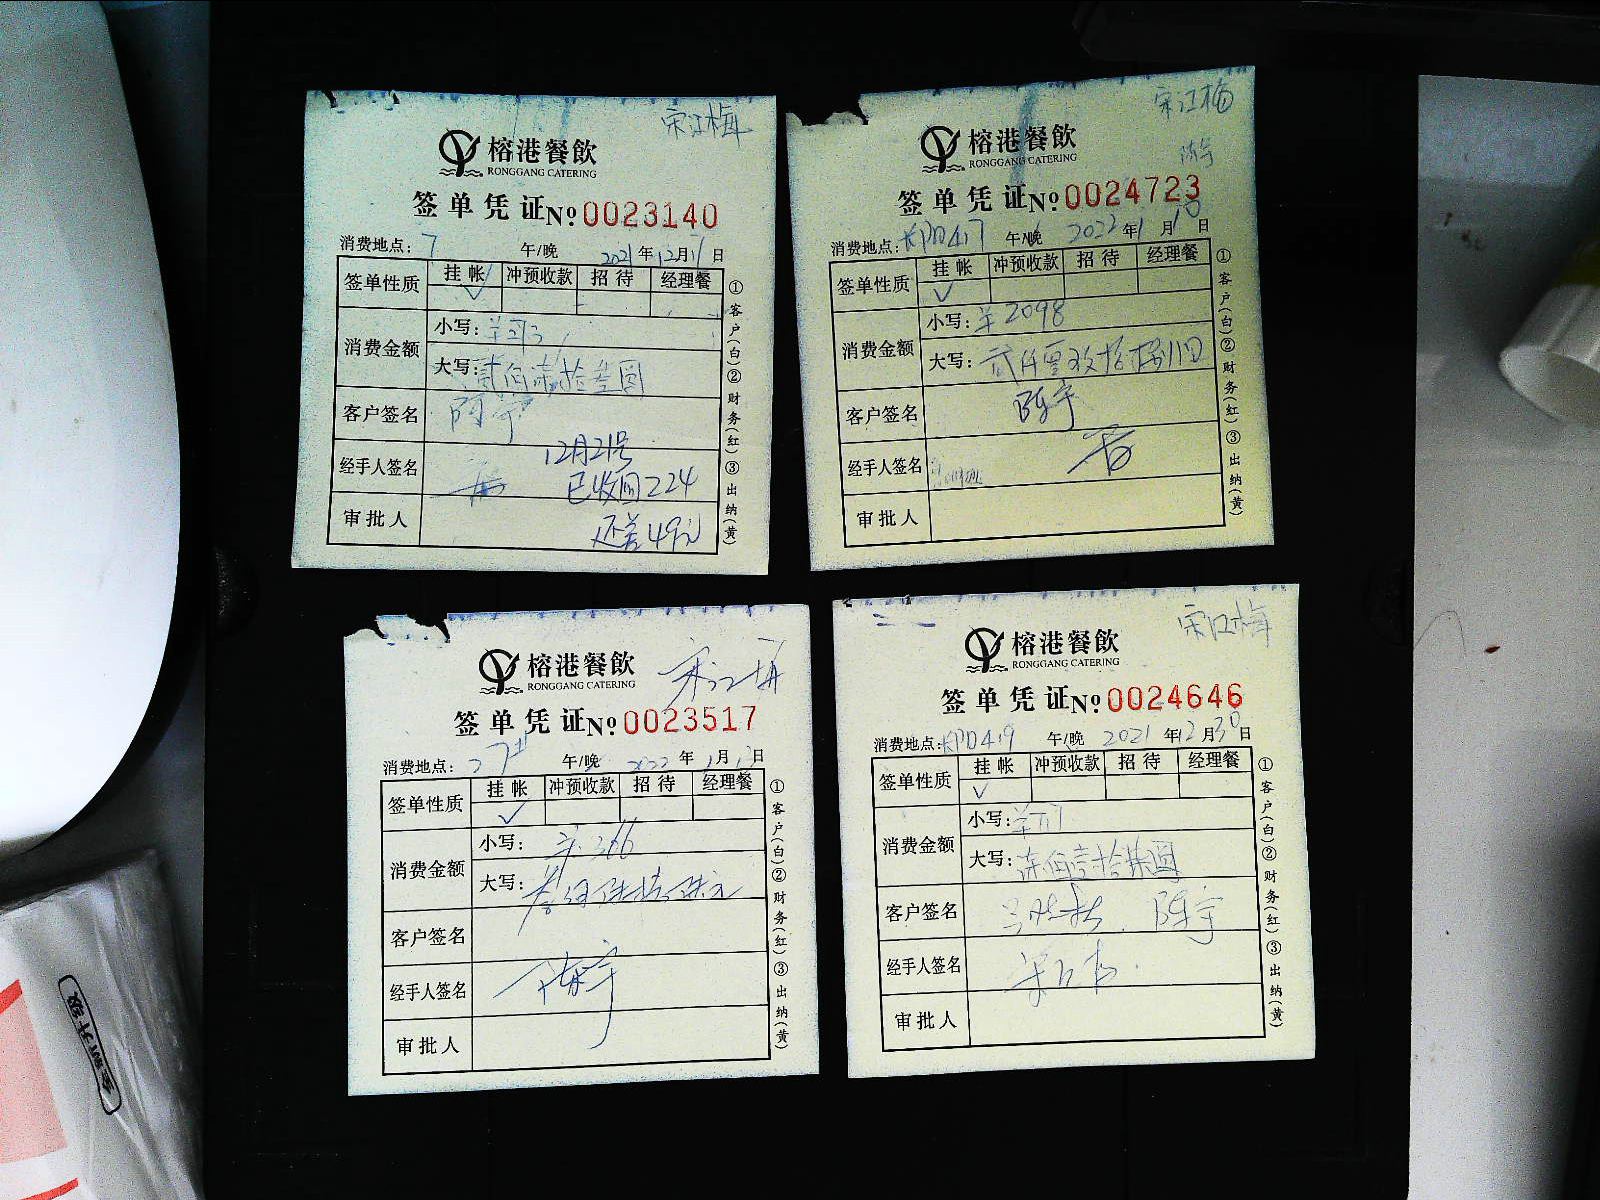 宋江梅
榕港餐飲
RONGGANG CATERING
签单凭证 №0023140
消费地点: 7 午/晚 2021年12月11日
签单性质 挂帐 冲预收款 招待 经理餐
✓
消费金额 小写: ¥273
大写: 贰佰柒拾叁圆
客户签名 陈宇
12月21号
经手人签名 已收回224
审批人 还差49元
①客户(白)②财务(红)③出纳(黄)
宋江梅
榕港餐飲
RONGGANG CATERING
陈宇
签单凭证 №0024723
消费地点: KPD417 午/晚 2022年1月18日
签单性质 挂帐 冲预收款 招待 经理餐
✓
消费金额 小写: ¥2098
大写: 贰仟零玖拾捌圆
客户签名 陈宇
经手人签名
审批人
①客户(白)②财务(红)③出纳(黄)
宋江梅
榕港餐飲
RONGGANG CATERING
签单凭证 №0023517
消费地点: 27# 午/晚 2022年1月13日
签单性质 挂帐 冲预收款 招待 经理餐
✓
消费金额 小写: ¥366
大写: 叁佰陆拾陆元
客户签名
经手人签名 陈宇
审批人
①客户(白)②财务(红)③出纳(黄)
宋江梅
榕港餐飲
RONGGANG CATERING
签单凭证 №0024646
消费地点: KPD419 午/晚 2021年12月30日
签单性质 挂帐 冲预收款 招待 经理餐
✓
消费金额 小写: ¥717
大写: 柒佰壹拾柒圆
客户签名 陈宇
经手人签名
审批人
①客户(白)②财务(红)③出纳(黄)
全新升级